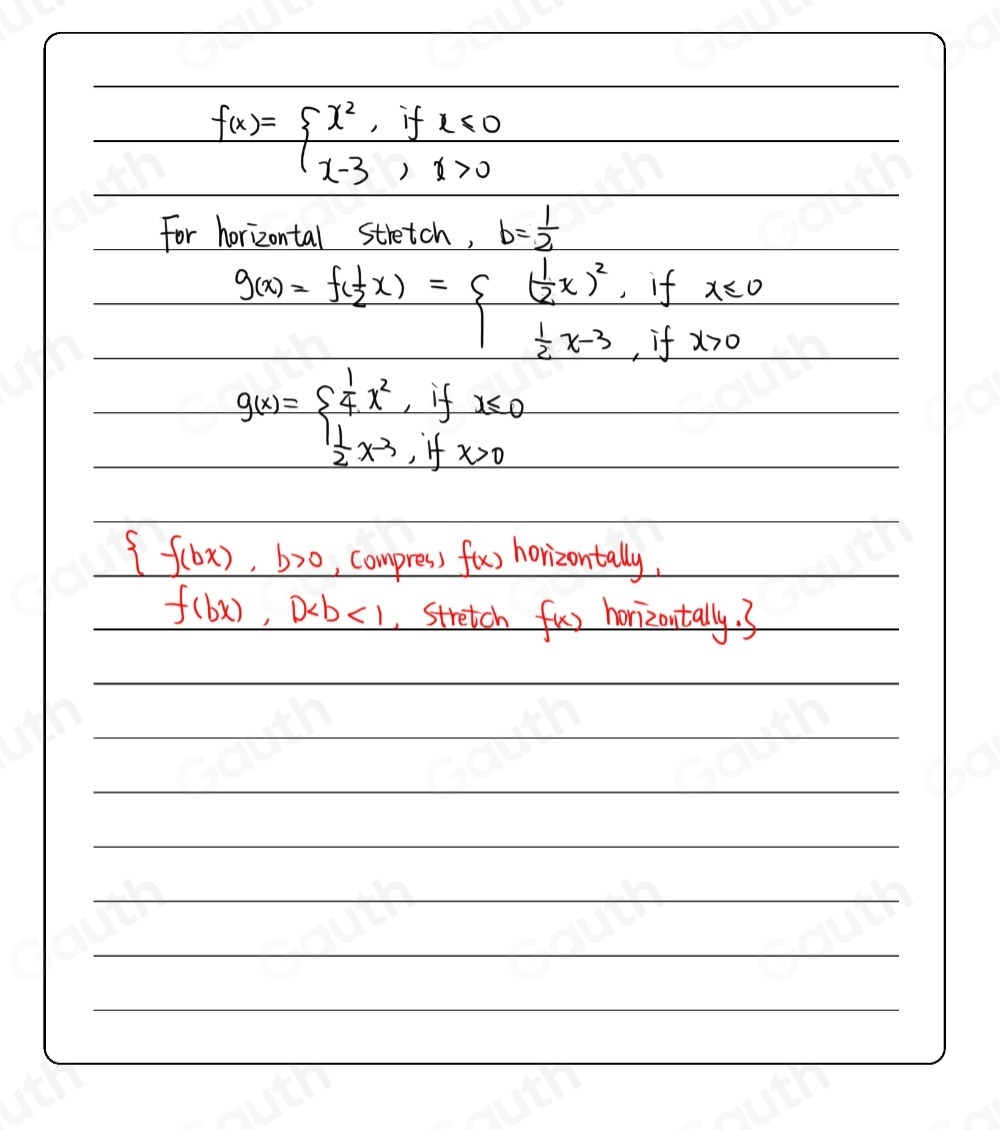 f(x)= { x², if x≤0
x-3, x>0
For horizontal stretch, b=1/2
g(x) = f(1/2 x) = { (1/2 x)², if x≤0
1/2 x-3, if x>0
g(x)= { 1/4 x², if x≤0
1/2 x-3, if x>0
{ f(bx), b>0, compress f(x) horizontally,
f(bx), 0<b<1, stretch f(x) horizontally.}